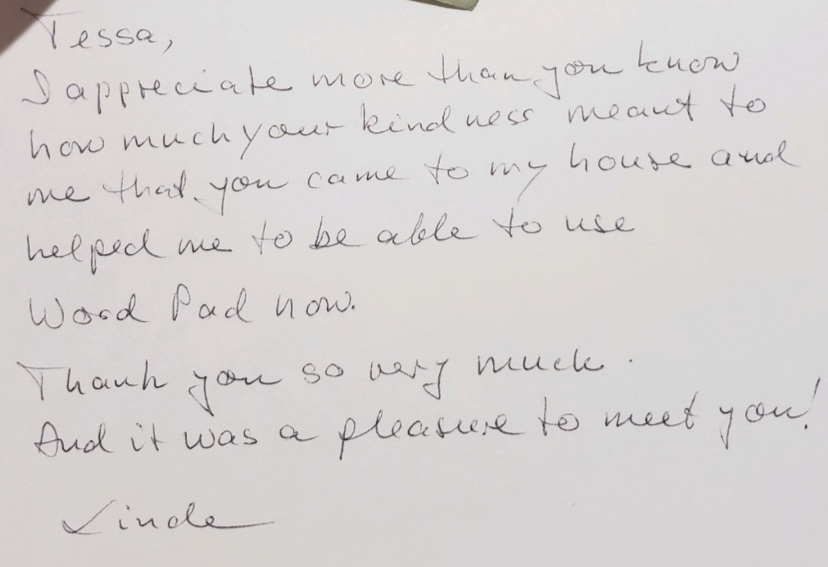 Tessa,
I appreciate more than you know
how much your kindness meant to
me that you came to my house and
helped me to be able to use
Word Pad now.
Thank you so very much.
And it was a pleasure to meet you!
Linda